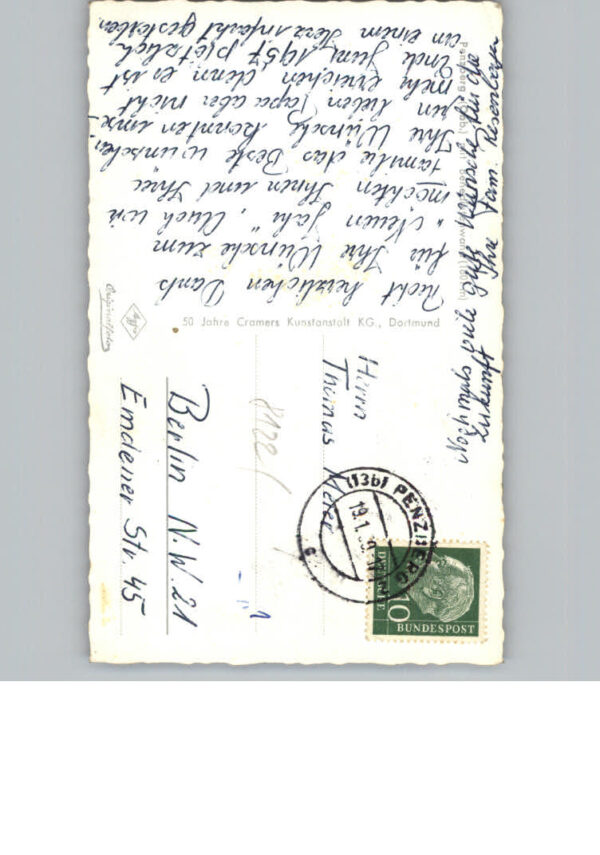 Recht herzlichen Dank
für Ihre Wünsche zum
"Neuen Jahr". Auch wir
möchten Ihnen und Ihrer
Familie das Beste wünschen.
Ihre Wünsche konnten uns.
lieben Papa aber nicht
mehr erreichen denn er ist
Ende Juni 1957 plötzlich
an einem Herzinfarkt gestorben.
Nochmals viele gute Wünsche für die
Zukunft Ihre Fam.
Penzberg
50 Jahre Cramers Kunstanstalt KG., Dortmund
Agfa
Originalfoto
Herrn
Thomas Meier
Berlin N.W.21
Emdener Str. 45
8122
(13b) PENZBERG
19.1.
10
BUNDESPOST